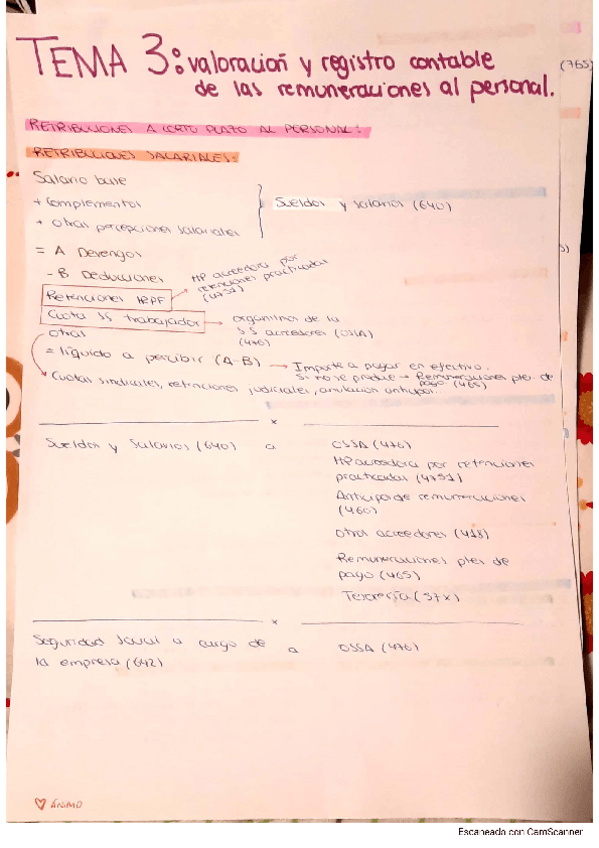 TEMA 3: valoración y registro contable
de las remuneraciones al personal.
(765)
RETRIBUCIONES A CORTO PLAZO AL PERSONAL:
RETRIBUCIONES SALARIALES:
Salario base
+ Complementos
+ otras percepciones salariales
Sueldos y salarios (640)
= A Devengos
- B Deducciones
HP acreedora por
retenciones practicadas
(4751)
Retenciones IRPF
Cuota SS trabajador
organismos de la
SS acreedores (OSSA)
(476)
otras
= líquido a percibir (A-B)
Importe a pagar en efectivo.
Si no se produce → Remuneraciones ptes. de
pago (465)
Cuotas sindicales, retenciones judiciales, anulación anticipo...
x
Sueldos y Salarios (640) a OSSA (476)
HP acreedora por retenciones
practicadas (4751)
Anticipo de remuneraciones
(460)
Otros acreedores (418)
Remuneraciones ptes de
pago (465)
Tesorería (57x)
x
Seguridad Social a cargo de
la empresa (642) a OSSA (476)
♡ ÁNIMO
Escaneado con CamScanner